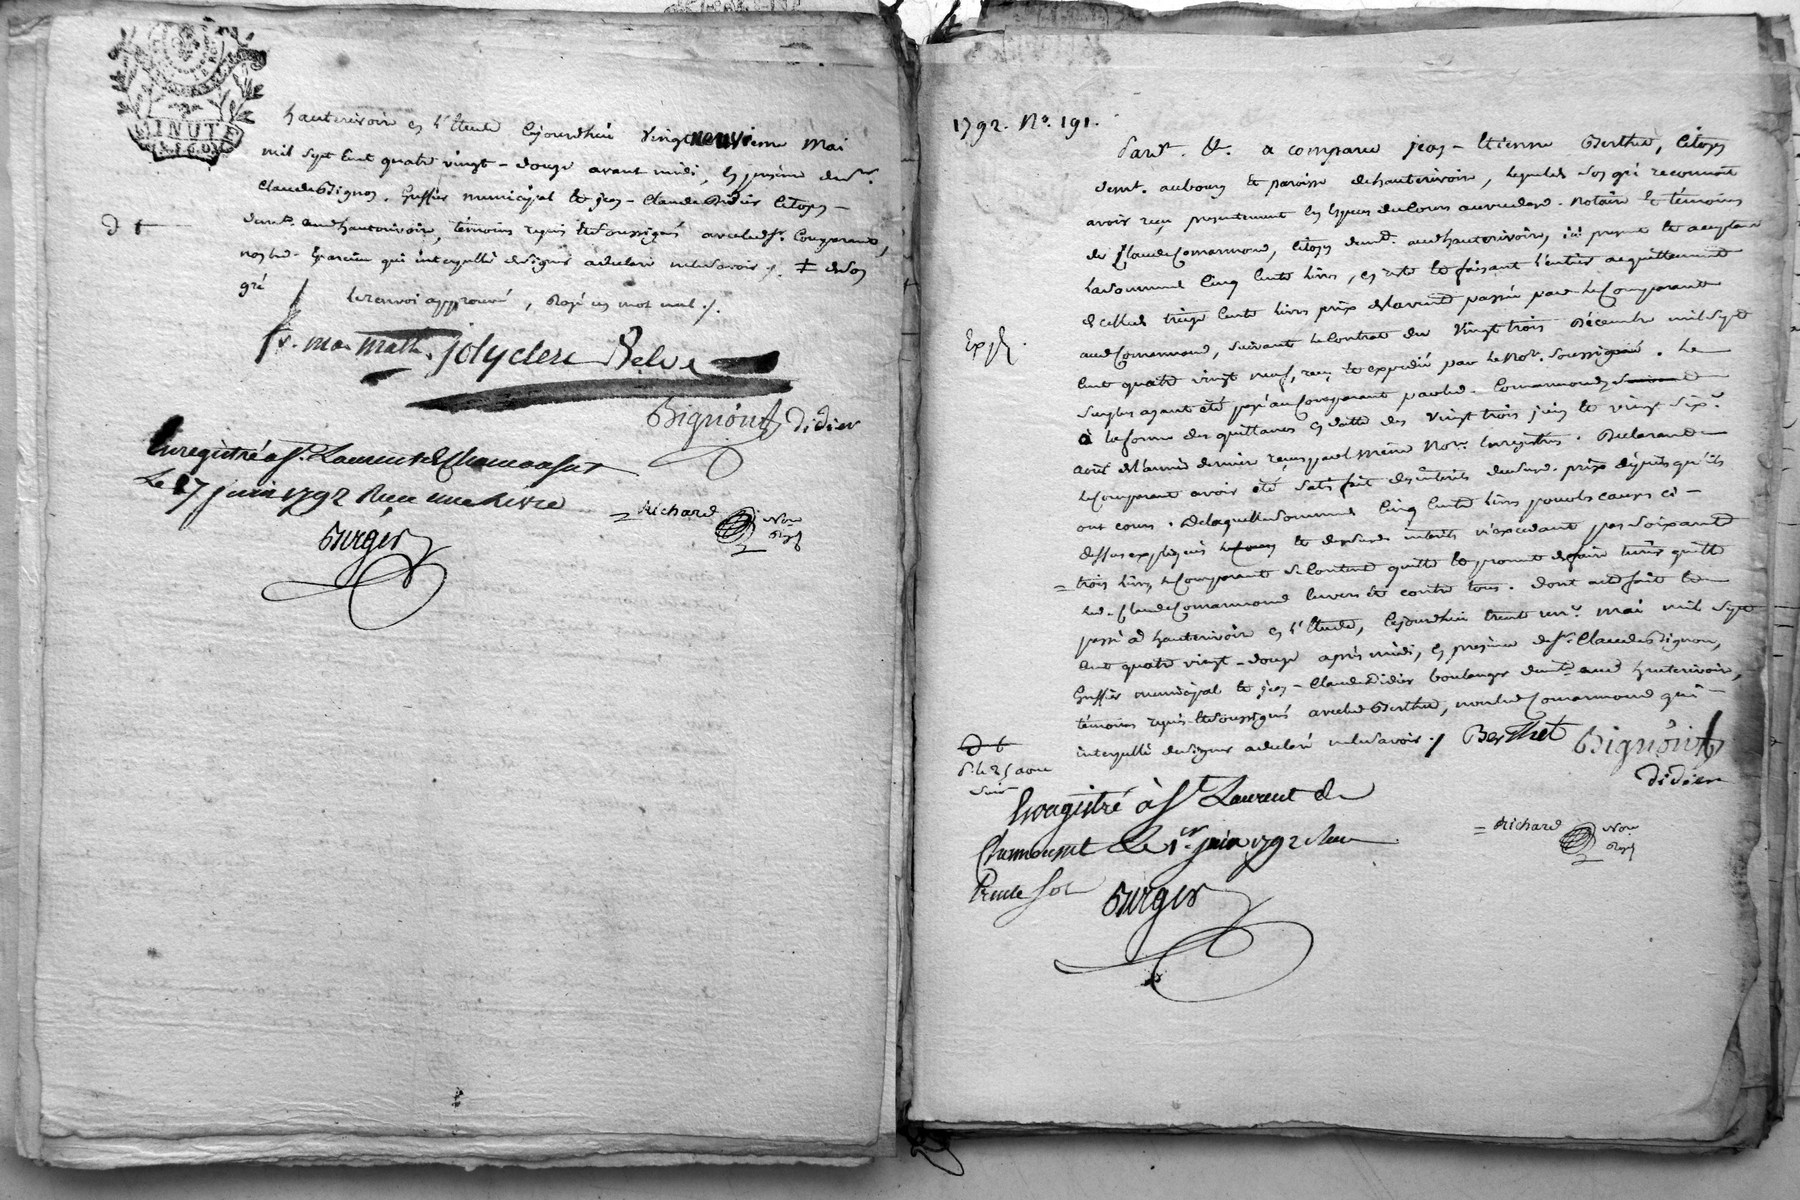 MINUTE
hauterivoire en l'Etude cejourdhui vingt neuvieme mai
mil sept cent quatre vingt-douze avant midi, en presence de sr.
Claude Bignon, Greffier municipal et jean-Claude Didier Citoyen
demt. aud hauterivoire, témoins requis et soussignés avec led sr. Comparant,
non led. qui interpellé de signer a declaré ne le savoir ./. ‡ de son
gré
le renvoi approuvé, Rayé un mot nul ./.
jolyclerc
Bignon didier
Enregistré a St. Laurent de Chamousset
Le 7 juin 1792 Reçu une Livre
Burger
= Richard Nore
Royl
1792. No. 191.
Pardt. &. a comparu jean-Etienne Berthet, Citoyen
demt. au bourg et paroisse de hauterivoire, lequel de son gré reconnoit
avoir reçu presentement en especes du cours au vu desd. Notaire et témoins
de Claude Comarmond, Citoyen demt. aud hauterivoire, ici present et acceptant
la somme de Cinq Cents livres, en reste et faisant l'entier acquittement
de celle de treize Cents livres prix de la vente passée par le Comparant
aud Comarmond, suivant le Contrat du vingt trois Décembre mil sept
Cent quatre vingt neuf, reçu et expedié par le Nore. soussigné. Le
surplus ayant été payé au Comparant par led. Comarmond
à la forme des quittances en datte des vingt trois juin et vingt six
aout de l'année derniere reçues par le même Nore. Enregistrées. Declarant
le Comparant avoir été satisfait des interets dud. prix depuis qu'ils
ont cours. De laquelle somme de Cinq Cents livres pour les causes ci-
dessus expliquées et desd. interets n'excedant pas soixante
trois livres, le Comparant se Contente quitte et promet de faire tenir quitte
led. Claude Comarmond Envers et contre tous. Dont acte fait et
passé aud hauterivoire en l'Etude, cejourdhui trente un. mai mil sept
cent quatre vingt-douze après midi, en presence de sr. Claude Bignon,
Greffier municipal et jean-Claude Didier boulanger demts. aud hauterivoire,
témoins requis et soussignés avec led Berthet, non led Comarmond qui
interpellé de signer a declaré ne le savoir ./. Berthet Bignon
didier
Enregistré à St. Laurent de
Chamousset Le 1er. juin 1792 Reçu
Trente sols
Burger
= Richard Nore
Royl